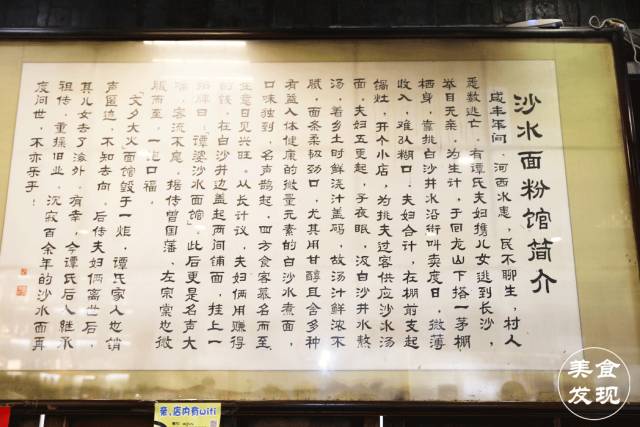 沙水面粉馆简介
咸丰年间，河西水患，民不聊生，村人
悉数逃亡。有谭氏夫妇携儿女逃到长沙，
举目无亲，为生计，于回龙山下搭一茅棚
栖身，靠挑白沙井水沿街叫卖度日，微薄
收入，难以糊口。夫妇合计，在棚前支起
锅灶，开个小店，为挑夫过客供应沙水汤
面，夫妇五更起，子夜眠，汲白沙井水熬
汤，着乡土时鲜浇汁盖码，故汤汁鲜浓不
腻，面条柔韧劲口，尤其用甘醇且含多种
有益人体健康的微量元素的白沙水煮面，
口味独到，名声鹊起，四方食客慕名而至。
生意日见兴旺。从长计议，夫妇俩用赚得
的钱，在白沙井边盖起两间铺面，挂上一
招牌曰：谭婆沙水面馆，此后更是名声大
噪，客流不息，据传曾国藩、左宗棠也微
服而至，一饱口福。
「文夕大火」面馆毁于一炬，谭氏家人也销
声匿迹，不知去向。后传夫妇俩离世后，
其儿女去了海外，有幸，今谭氏后人继承
祖传，重操旧业，沉寂百余年的沙水面再
度问世，不亦乐乎！
亲,店内有wifi
美食
发现